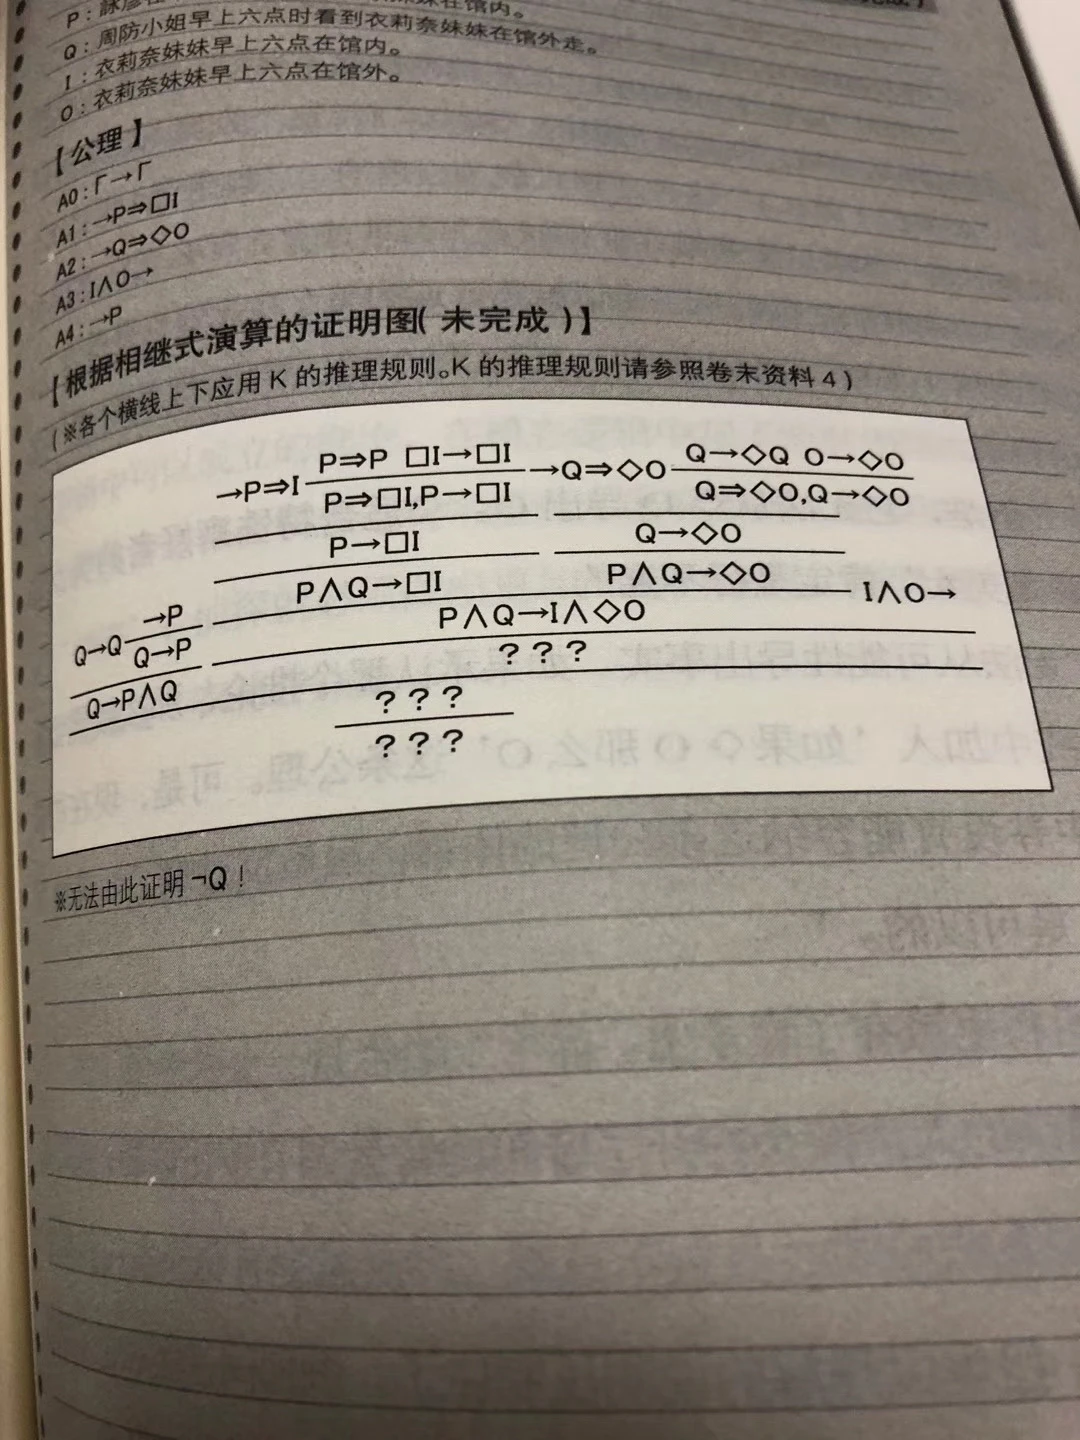 P：詠彦在馆内。
Q：周防小姐早上六点时看到衣莉奈妹妹在馆外走。
I：衣莉奈妹妹早上六点在馆内。
O：衣莉奈妹妹早上六点在馆外。
【公理】
A0：Γ→Γ
A1：→P⇒□I
A2：→Q⇒◇O
A3：I∧O→
A4：→P
【根据相继式演算的证明图（未完成）】
（※各个横线上下应用K的推理规则。K的推理规则请参照卷末资料4）
P⇒P □I→□I Q→◇Q O→◇O
→P⇒I →Q⇒◇O
P⇒□I,P→□I Q⇒◇O,Q→◇O
P→□I Q→◇O
P∧Q→□I P∧Q→◇O I∧O→
→P P∧Q→I∧◇O
Q→Q Q→P ？？？
Q→P∧Q ？？？
？？？
※无法由此证明¬Q！